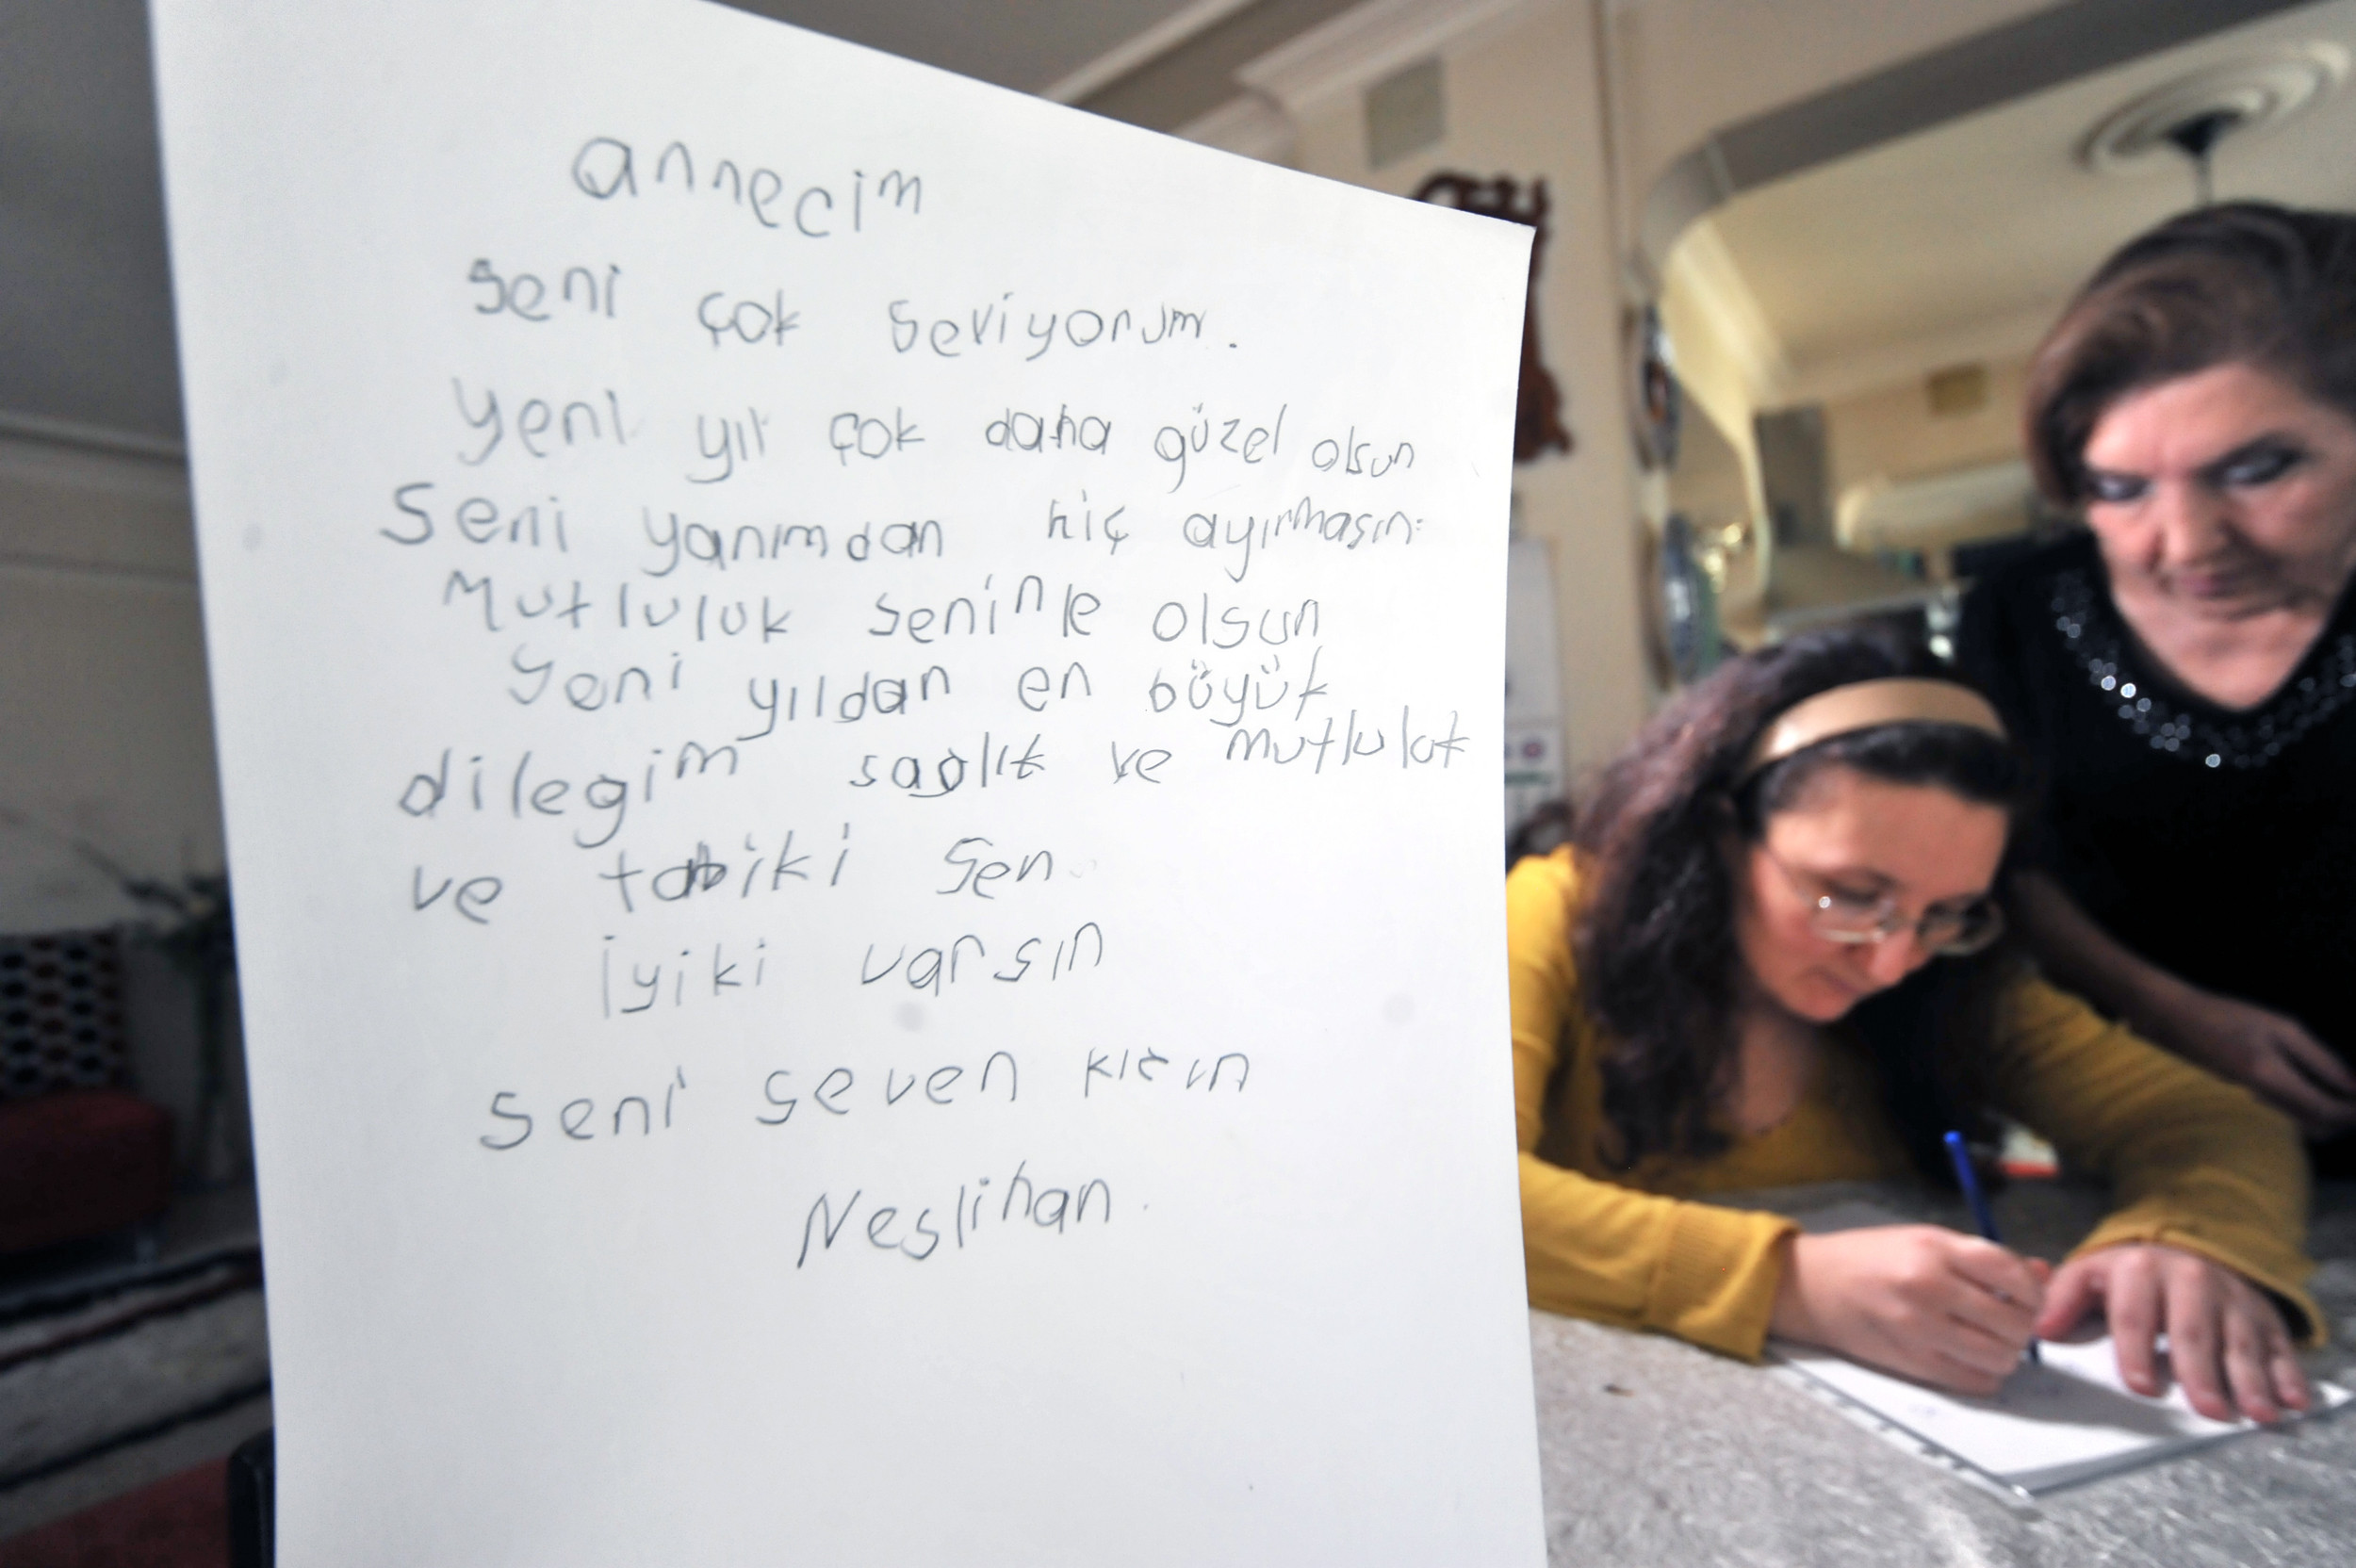 annecim
seni çok seviyorum.
yeni yıl çok daha güzel olsun
Seni yanımdan hiç ayırmasın.
Mutluluk seninle olsun
yeni yıldan en böyük
dilegim saglık ve mutluluk
ve tabiki sen
iyiki varsın
seni seven kızın
Neslihan.